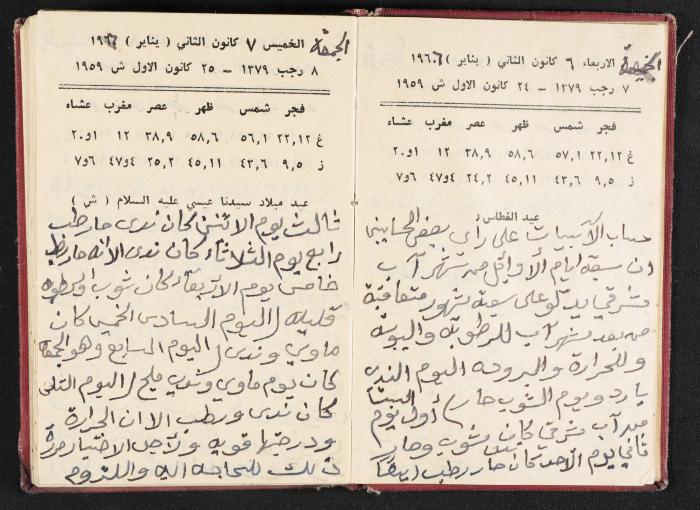 الخميسة
الاربعاء ٦ كانون الثاني ( يناير ) ١٩٦٦
٧ رجب ١٣٧٩ – ٢٤ كانون الاول ش ١٩٥٩
فجر شمس ظهر عصر مغرب عشاء
غ ٢٢,١٢ ٥٧,١ ٥٨,٦ ٣٨,٩ ١٢ ١و٢٠
ز ٩,٥ ٤٣,٦ ٤٥,١١ ٢٤,٢ ٤و٤٧ ٦و٧
عيد الغطاس
حساب الآبيات على راي بعض
ان سبعة ايام الأوايل من شهر آب
شرقي يدلو على سبعة شهور متعاقبة
من بعد شهر آب للرطوبة واليبوسة
وللحرارة والبروده اليوم الندى
بارد ويوم الشوب حار / أول يوم
من آب شرقي كان شوب وحار
ثاني يوم الاحد كان حار رطب ايضاً
الجمعة
الخميس ٧ كانون الثاني ( يناير ) ١٩٦٦
٨ رجب ١٣٧٩ – ٢٥ كانون الاول ش ١٩٥٩
فجر شمس ظهر عصر مغرب عشاء
غ ٢٢,١٢ ٥٦,١ ٥٨,٦ ٣٨,٩ ١٢ ١و٢٠
ز ٩,٥ ٤٣,٦ ٤٥,١١ ٢٥,٢ ٤و٤٧ ٦و٧
عيد ميلاد سيدنا عيسى عليه السلام ( ش )
ثالث يوم الاثنين كان ندى حار رطب
رابع يوم الثلاثاء كان ندى الا انه حار رطب
خامس يوم الاربعاء كان شوب أو رطوبه
قليله / اليوم السادس الخميس كان
ماوي وندى / اليوم السابع وهو الجمعة
كان يوم ماوي وندي مليح / اليوم الثامن
كان ندى ورطب الا ان الحرارة
ودرجتها قويه
ذلك للحاجه اليه واللزوم